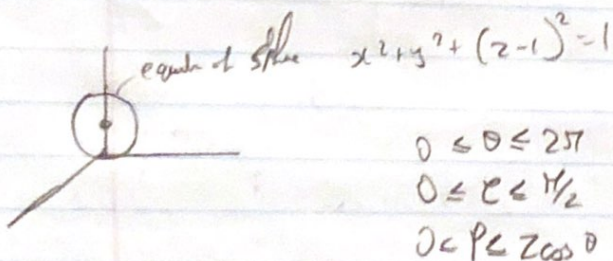 equatn of sphere x²+y²+(z-1)²=1
0 ≤ θ ≤ 2π
0 ≤ φ ≤ π/2
0 ≤ ρ ≤ 2cos θ